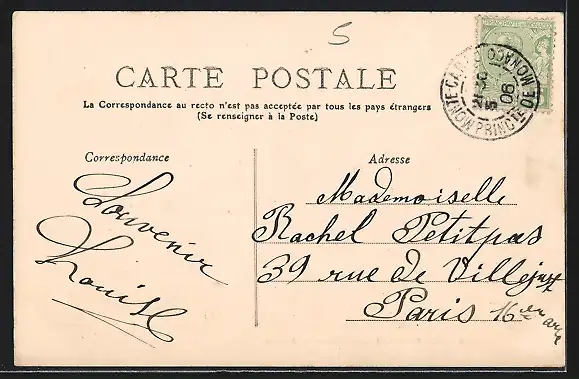 5
CARTE POSTALE
La Correspondance au recto n'est pas acceptée par tous les pays étrangers
(Se renseigner à la Poste)
Correspondance
Souvenir
Louise
Adresse
Mademoiselle
Rachel Petitpas
39 rue de Villejust
Paris 16e arr
MONTE-CARLO
08
PRINCTE DE MONACO